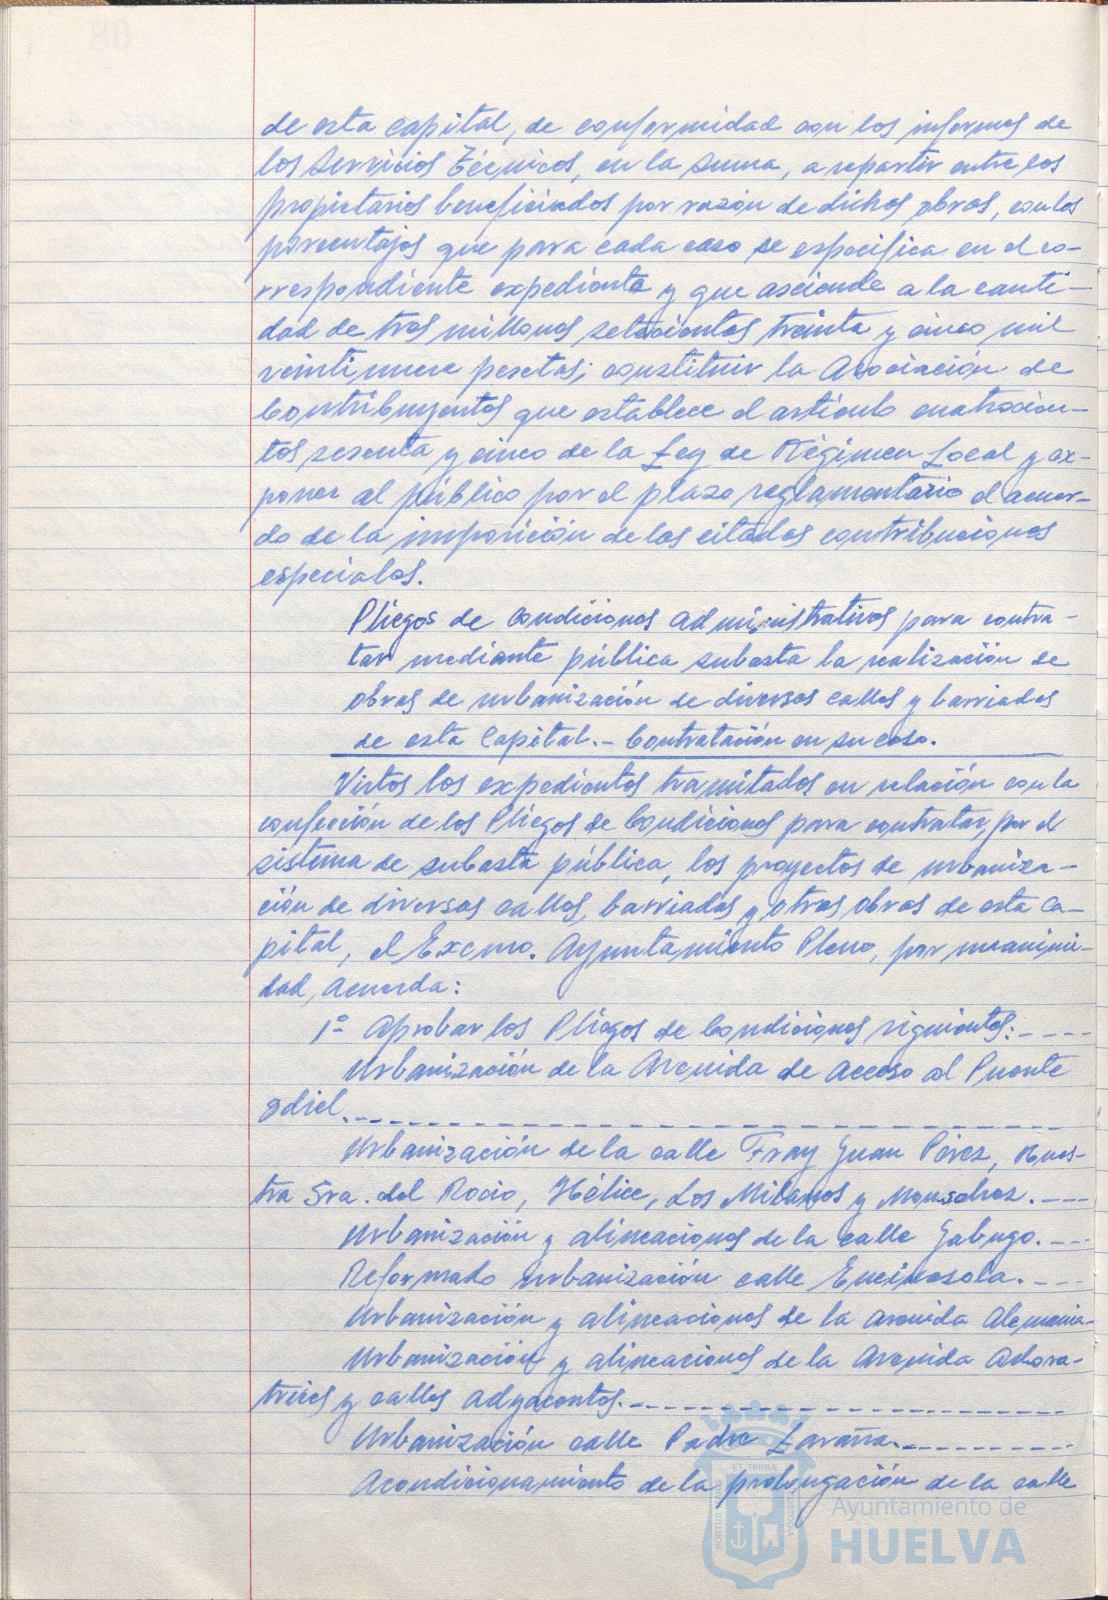 de esta capital, de conformidad con los informes de
los Servicios Técnicos, en la suma, a repartir entre los
propietarios beneficiados por razón de dichas obras, con los
porcentajes que para cada caso se especifica en el co-
rrespondiente expediente y que asciende a la canti-
dad de tres millones setecientas treinta y cinco mil
veintinueve pesetas; constituir la Asociación de
Contribuyentes que establece el artículo cuatrocien-
tos sesenta y cinco de la Ley de Régimen Local y ex-
poner al público por el plazo reglamentario el acuer-
do de la imposición de las citadas contribuciones
especiales.
Pliegos de Condiciones Administrativas para contra-
tar mediante pública subasta la realización de
obras de urbanización de diversas calles y barriadas
de esta Capital.- Contratación en su caso.
Vistos los expedientes tramitados en relación con la
confección de los Pliegos de Condiciones para contratar por el
sistema de subasta pública, los proyectos de urbaniza-
ción de diversas calles, barriadas y otras obras de esta Ca-
pital, el Excmo. Ayuntamiento Pleno, por unanimi-
dad, Acuerda:
1º- Aprobar los Pliegos de Condiciones siguientes:----
Urbanización de la Avenida de Acceso al Puente
Odiel.
Urbanización de la calle Fray Juan Pérez, Nues-
tra Sra. del Rocio, Hélice, Los Milanos y Monsalvez.---
Urbanización y alineaciones de la calle Jabugo.---
Reformado urbanización calle Encinasola.---
Urbanización y alineaciones de la avenida Alemania-
Urbanización y alineaciones de la Avenida Adora-
trices y calles Adyacentes.
Urbanización calle Padre Laraña.
Acondicionamiento de la prolongación de la calle
Ayuntamiento de
HUELVA